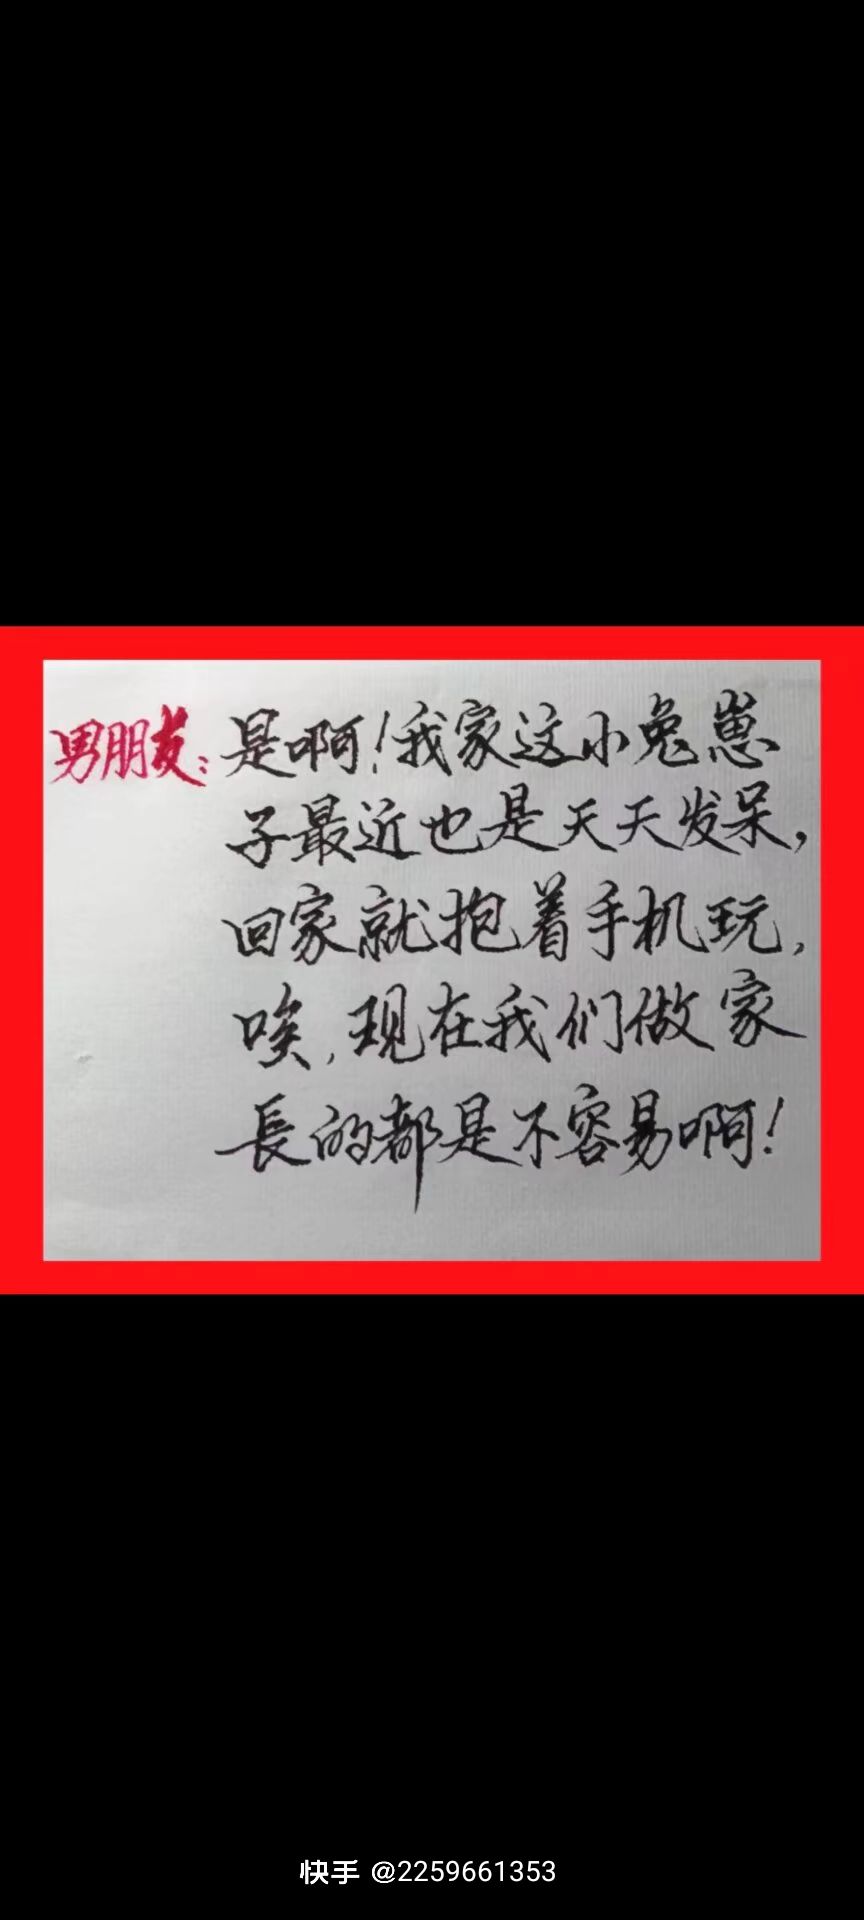 男朋友：是啊！我家这小兔崽
子最近也是天天发呆，
回家就抱着手机玩，
唉，现在我们做家
長的都是不容易啊！
快手 @2259661353